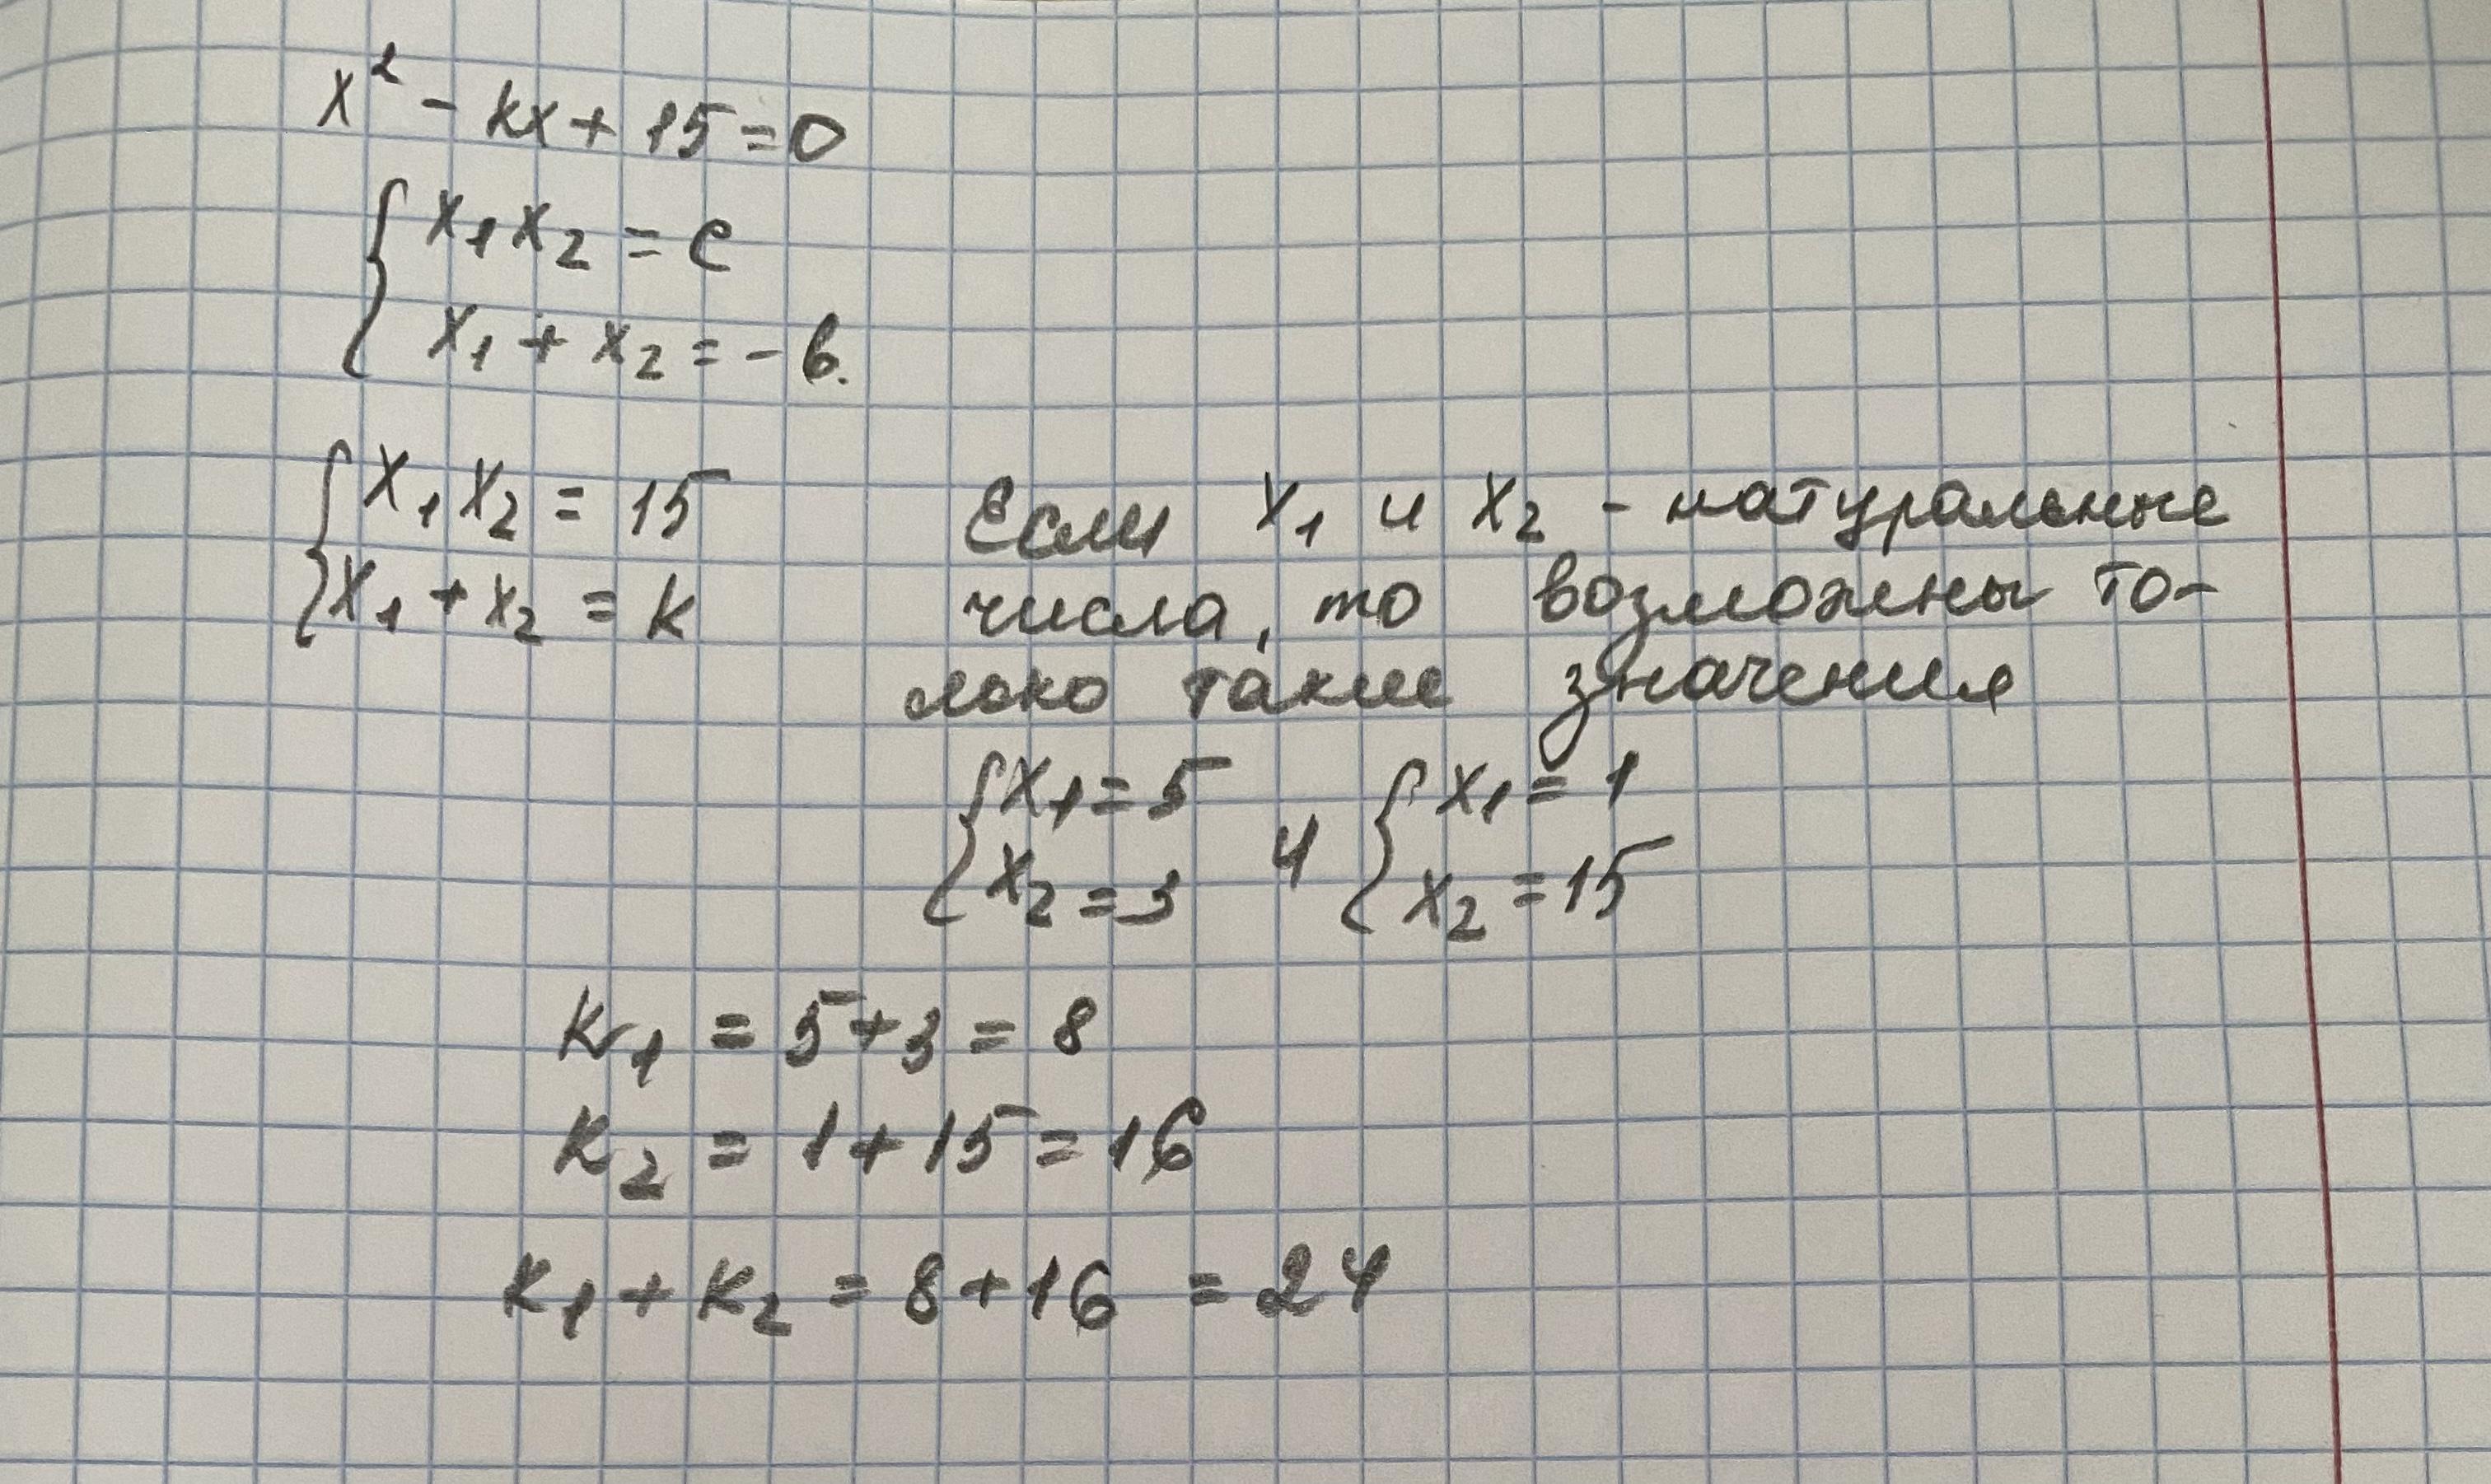 x² - kx + 15 = 0
x₁x₂ = c
x₁ + x₂ = -b.
x₁x₂ = 15
x₁ + x₂ = k
Если x₁ и x₂ - натуральные
числа, то возможны то-
лько такие значения
{x₁ = 5 и {x₁ = 1
x₂ = 3 x₂ = 15
k₁ = 5+3 = 8
k₂ = 1+15 = 16
k₁ + k₂ = 8+16 = 24